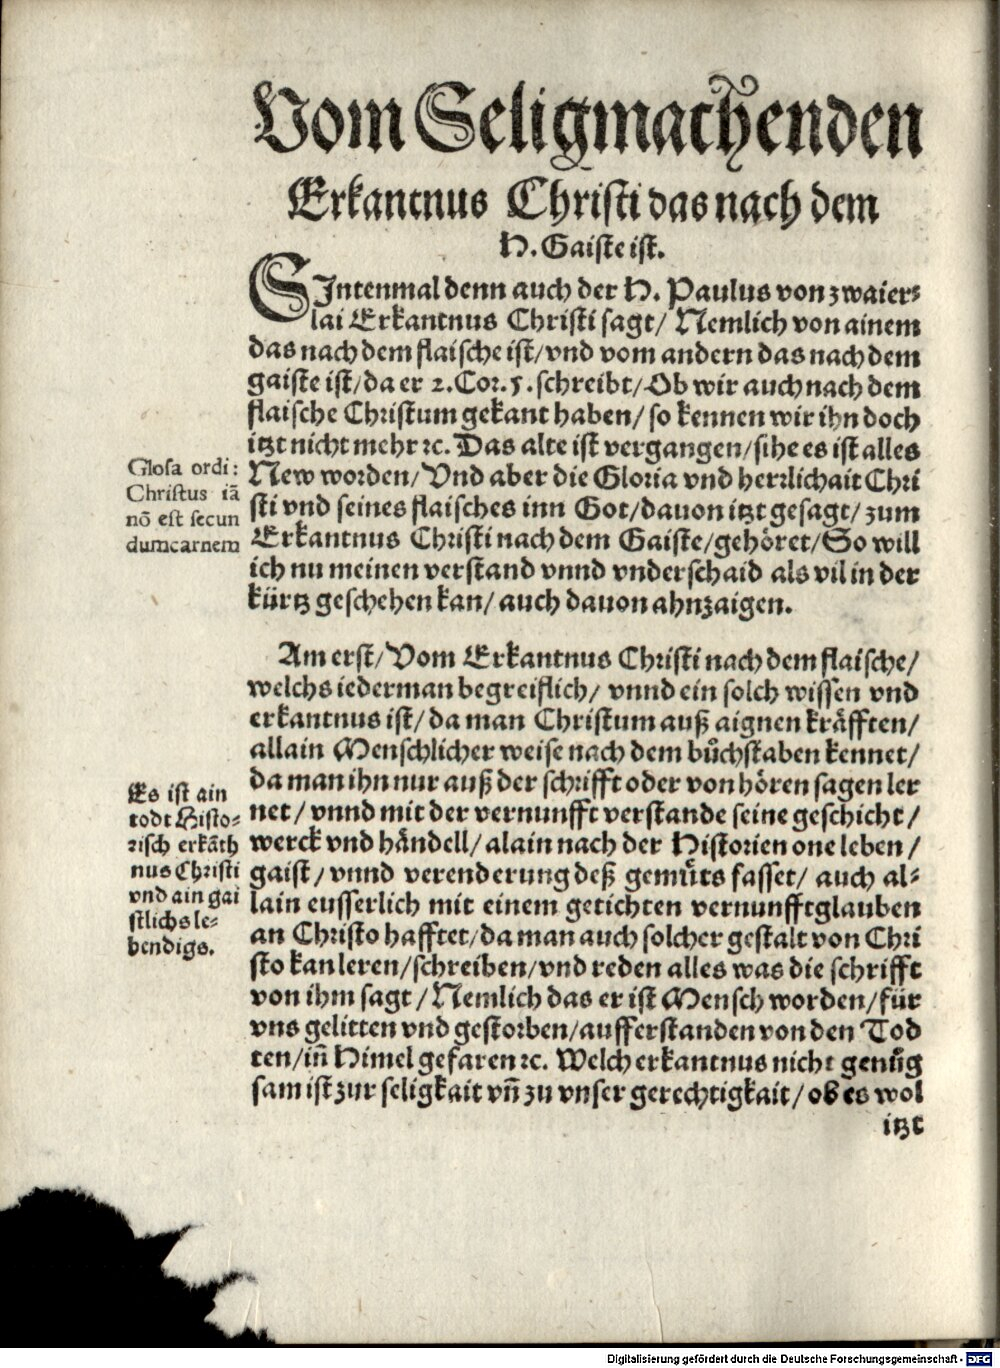 Vom Seligmachenden
Erkantnus Christi das nach dem
H. Gaiste ist.
SIntenmal denn auch der H. Paulus von zwaier⸗
lai Erkantnus Christi sagt/ Nemlich von ainem
das nach dem flaische ist/ vnd vom andern das nach dem
gaiste ist/ da er 2. Cor. 5. schreibt/ Ob wir auch nach dem
flaische Christum gekant haben/ so kennen wir ihn doch
itzt nicht mehr ꝛc. Das alte ist vergangen/ sihe es ist alles
New worden/ Vnd aber die Gloria vnd herrlichait Chri
sti vnd seines flaisches inn Got/ dauon itzt gesagt/ zum
Erkantnus Christi nach dem Gaiste/ gehöret/ So will
ich nu meinen verstand vnnd vnderschaid als vil in der
kürtz geschehen kan/ auch dauon ahnzaigen.
Glosa ordi:
Christus iā
nō est secun
dum carnem
Am erst/ Vom Erkantnus Christi nach dem flaische/
welchs iederman begreiflich/ vnnd ein solch wissen vnd
erkantnus ist/ da man Christum auß aignen kräfften/
allain Menschlicher weise nach dem bůchstaben kennet/
da man ihn nur auß der schrifft oder von hören sagen ler
net/ vnnd mit der vernunfft verstande seine geschicht/
werck vnd händell/ alain nach der Historien one leben/
gaist/ vnnd verenderung deß gemůts fasset/ auch al⸗
lain eusserlich mit einem getichten vernunfftglauben
an Christo hafftet/ da man auch solcher gestalt von Chri
sto kan leren/ schreiben/ vnd reden alles was die schrifft
von ihm sagt/ Nemlich das er ist Mensch worden/ für
vns gelitten vnd gestorben/ aufferstanden von den Tod
ten/ in̄ Himel gefaren ꝛc. Welch erkantnus nicht genůg
sam ist zur seligkait vn̄ zu vnser gerechtigkait/ ob es wol
itzt
Es ist ain
todt Histo⸗
risch erkāth
nus Christi
vnd ain gai
stlichs le⸗
bendigs.
Digitalisierung gefördert durch die Deutsche Forschungsgemeinschaft - DFG